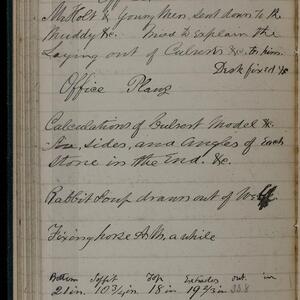 Mr Holt & young men sent down to the
Muddy &c. tried to explain the
laying out of Culverts &c. to him.
Desk fixed
Office Plans
Calculations of Culvert Model &c.
sides, and angles of Each
stone in the End. &c.
Rabbit Soup drawn out of Well
Fixing horse a while
Bottom Soffit Top Extrados out. in
21 in. 10 3/4 in 18 in 19 2/3 in 33.8